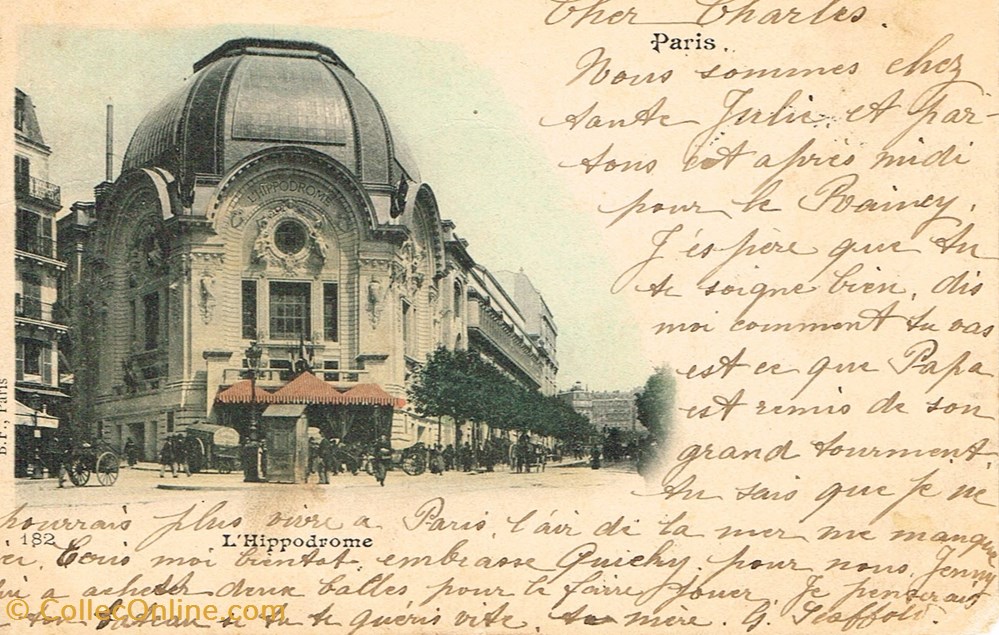 Cher Charles.
Paris.
Nous sommes chez
tante Julie et par-
tons cet après midi
pour le Rainey.
J'éspère que tu
te soigne bien, dis
moi comment tu vas
est ce que Papa
est remis de son
grand tourment,
tu sais que je ne
pourrais plus vivre a Paris l'air de la mer me manque
182
L'Hippodrome
ici. moi bientot embrasse pour nous. Jenny
lui a acheter deux balles pour le faire jouer. Je penserais
a ton bateau si tu te guéris vite, ta mère. G.
HIPPODROME
B.F., Paris
© CollecOnline.com